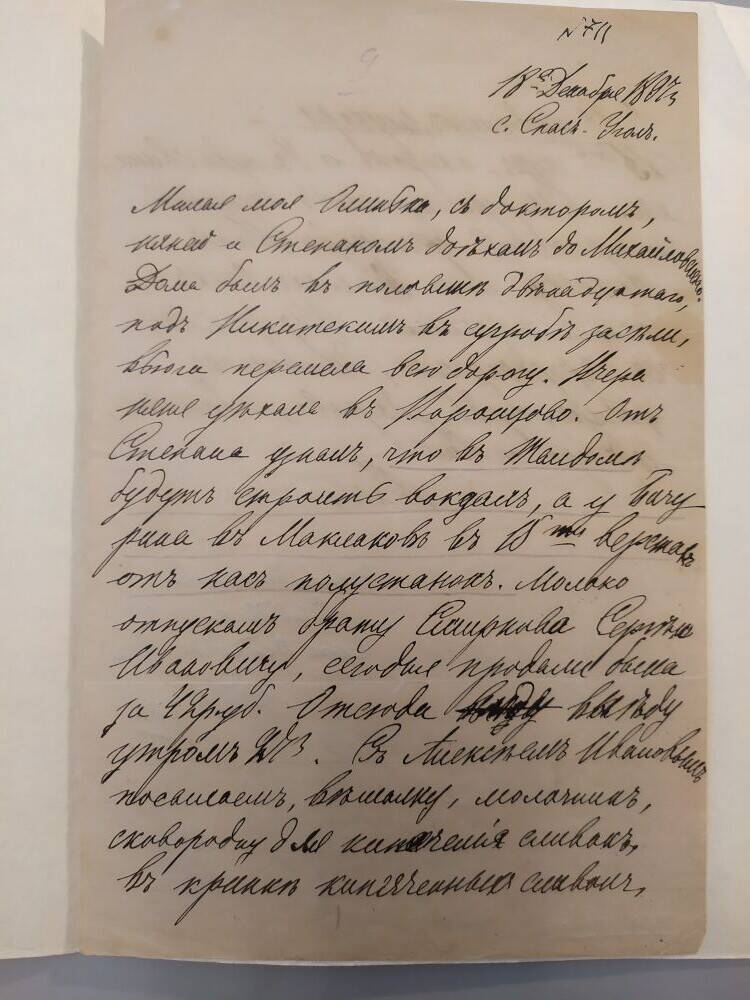 № 711
18го Декабря 1897г
с. Спасъ-Уголъ.
Милая моя Олинька, съ докторомъ,
няней и Степаномъ доѣхалъ до Михайловскаго.
Дома былъ въ половинѣ двѣнадцатаго,
подъ Никитскимъ въ сугробѣ засѣли,
вьюга перемела всю дорогу. Вчера
няня уѣхала въ
Отъ
Степана узналъ, что въ Талдомѣ
будутъ строить вокзалъ, а у Бачу
рина въ Маклаковѣ въ 15ти верстахъ
отъ насъ полустанокъ. Молоко
отпускаемъ брату Смирнова Сергѣю
Ивановичу, сегодня продали быка
за руб. Отсюда выѣду
утромъ 22го. Съ Алексѣемъ Ивановымъ
посылаемъ, вѣшалку, молочникъ,
сковородку для кипяченія сливокъ,
въ кринкѣ кипяченныхъ сливокъ,